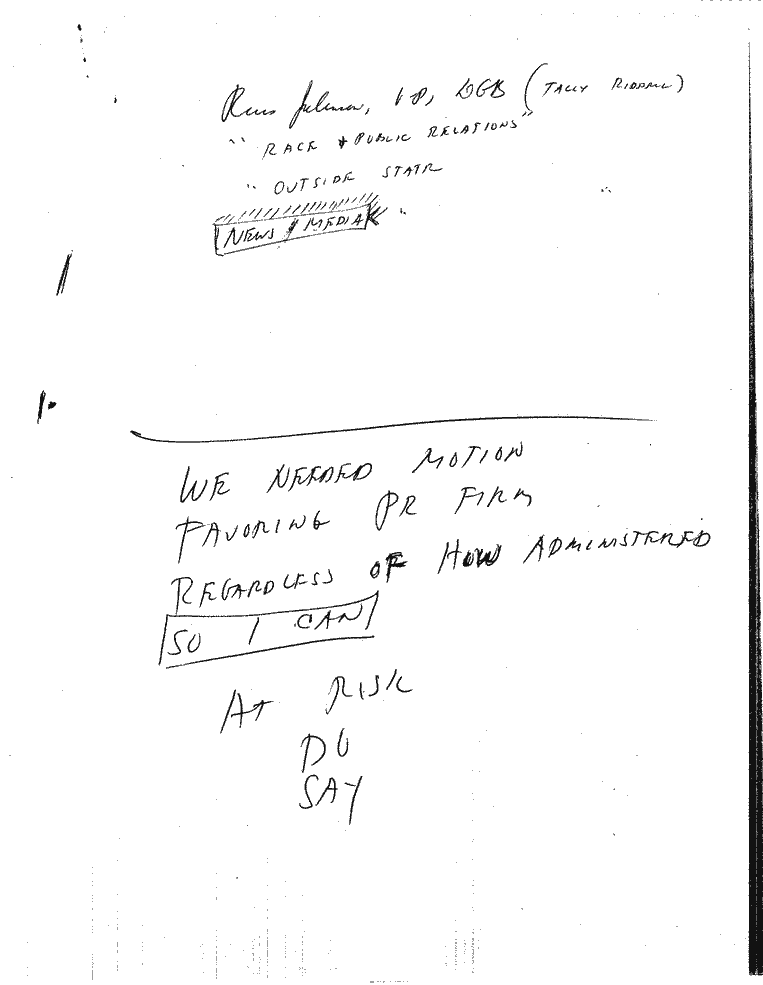 VP, DGB (TALLY RIDDELL)
" RACE & PUBLIC RELATIONS"
" OUTSIDE STATE "
NEWS / MEDIA "
WE NEEDED MOTION
FAVORING PR FIRM
REGARDLESS OF HOW ADMINISTERED
SO I CAN
AT RISK
DO
SAY